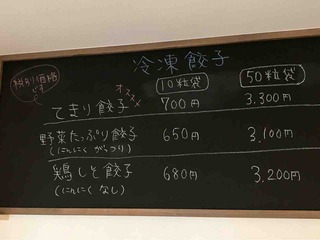 冷凍餃子
税別価格です
10粒袋 50粒袋
てきり餃子 オススメ 700円 3.300円
野菜たっぷり餃子 650円 3,100円
(にんにくがっつり)
鶏しそ餃子 680円 3.200円
(にんにくなし)